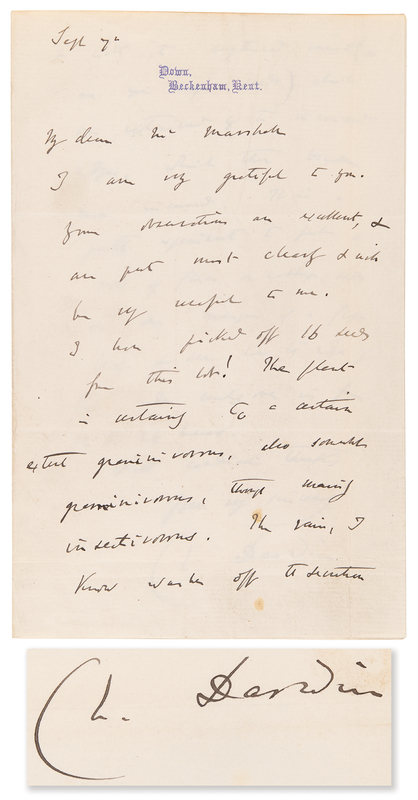 Sept 7th
Down,
Beckenham, Kent.
My dear Mr Marshall
I am very grateful to you.
Your observations are excellent, &
are put most clearly & will
be very useful to me.
I have picked off 16 seeds
from this lot! The plant
is certainly to a certain
extent graminivorous, also somewhat
graminivorous, though mainly
insectivorous. The rain, I
know washes off the secretion
Ch. Darwin